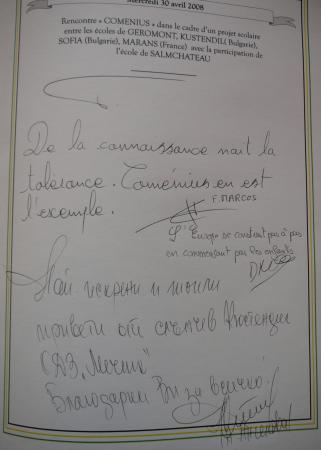 Mercredi 30 avril 2008
Rencontre « COMENIUS » dans le cadre d'un projet scolaire
entre les écoles de GEROMONT, KUSTENDIL( Bulgarie),
SOFIA (Bulgarie), MARANS (France) avec la participation de
l'école de SALMCHATEAU
De la connaissance naît la
tolérance. Coménius en est
l'exemple.
F. MARCOS
L'Europe se construit pas à pas
en commençant par les enfants
Най- искрени и топли
привети от слънчев Кюстендил
Благодарим Ви за всичко!